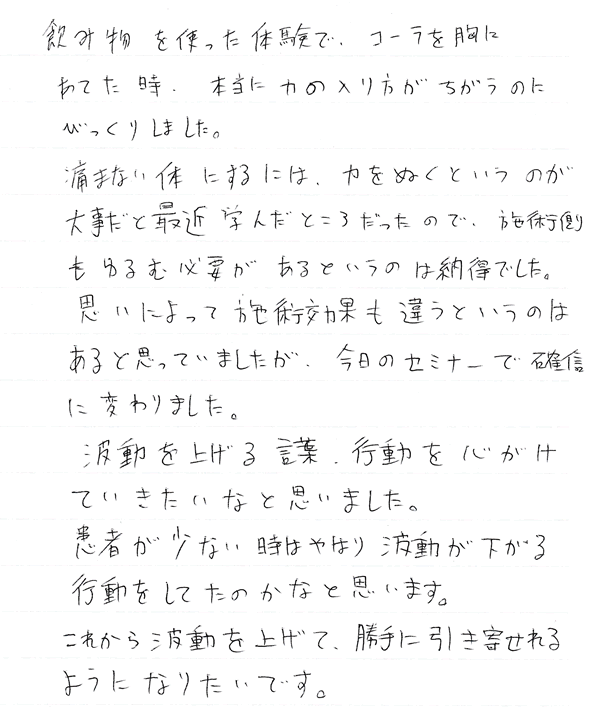 飲み物を使った体験で、コーラを胸に
あてた時、本当に力の入り方がちがうのに
びっくりしました。
痛まない体にするには、力をぬくというのが
大事だと最近学んだところだったので、施術側
もゆるむ必要があるというのは納得でした。
思いによって施術効果も違うというのは
あると思っていましたが、今日のセミナーで確信
に変わりました。
波動を上げる言葉、行動を心がけ
ていきたいなと思いました。
患者が少ない時はやはり波動が下がる
行動をしてたのかなと思います。
これから波動を上げて、勝手に引き寄せれる
ようになりたいです。